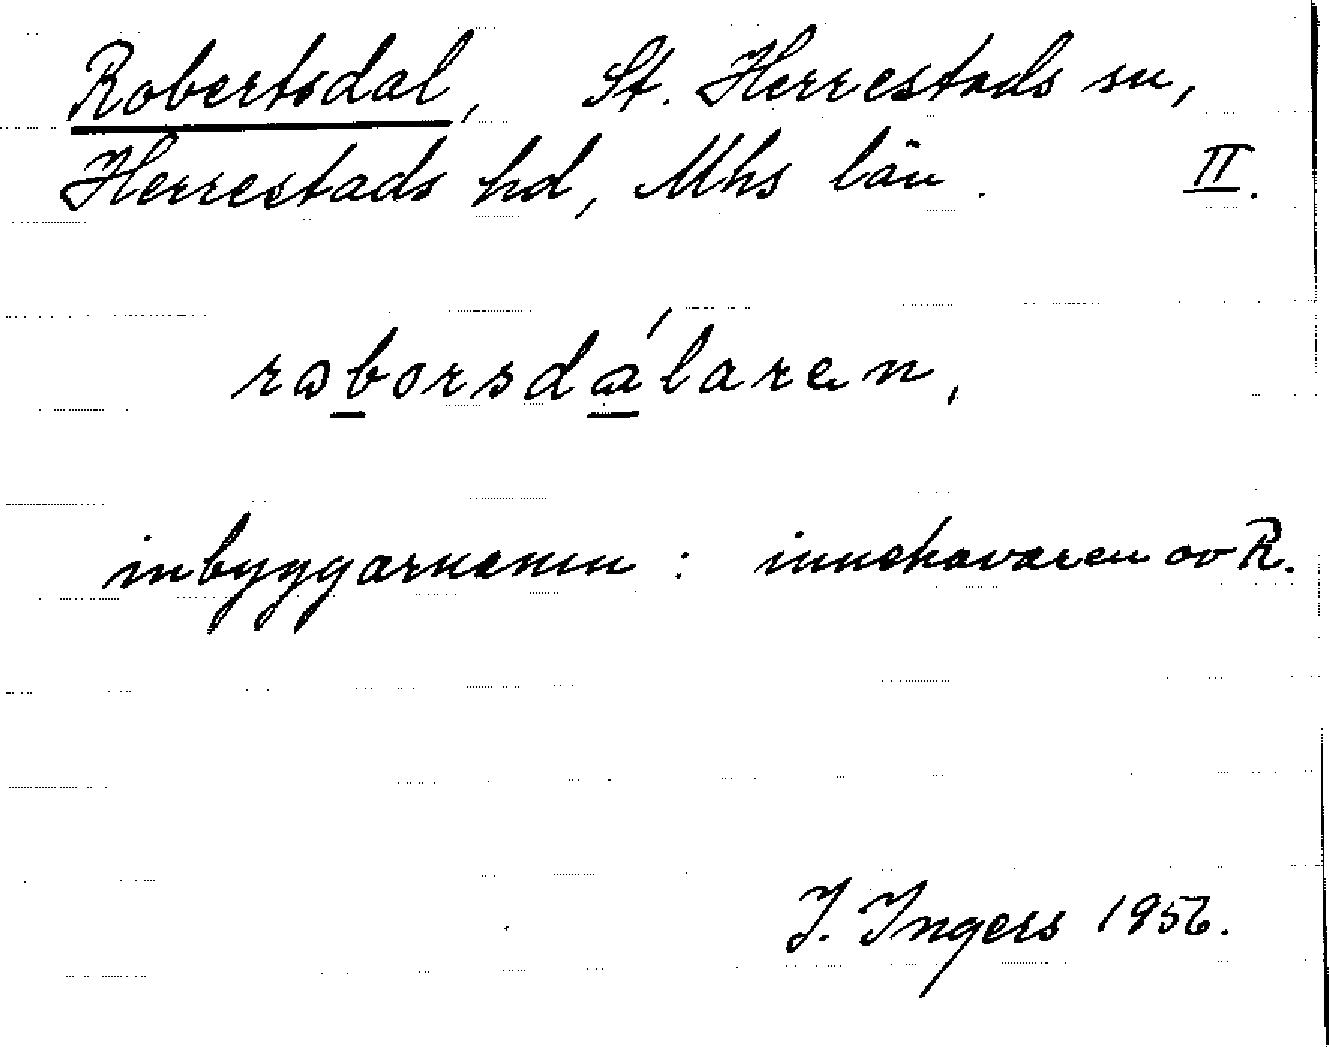 Robertsdal, St. Herrestads sn,
Herrestads hd, Mhs län. II.
raborsdálaren,
inbyggarnamn : innehavaren av R.
I. Ingers 1956.